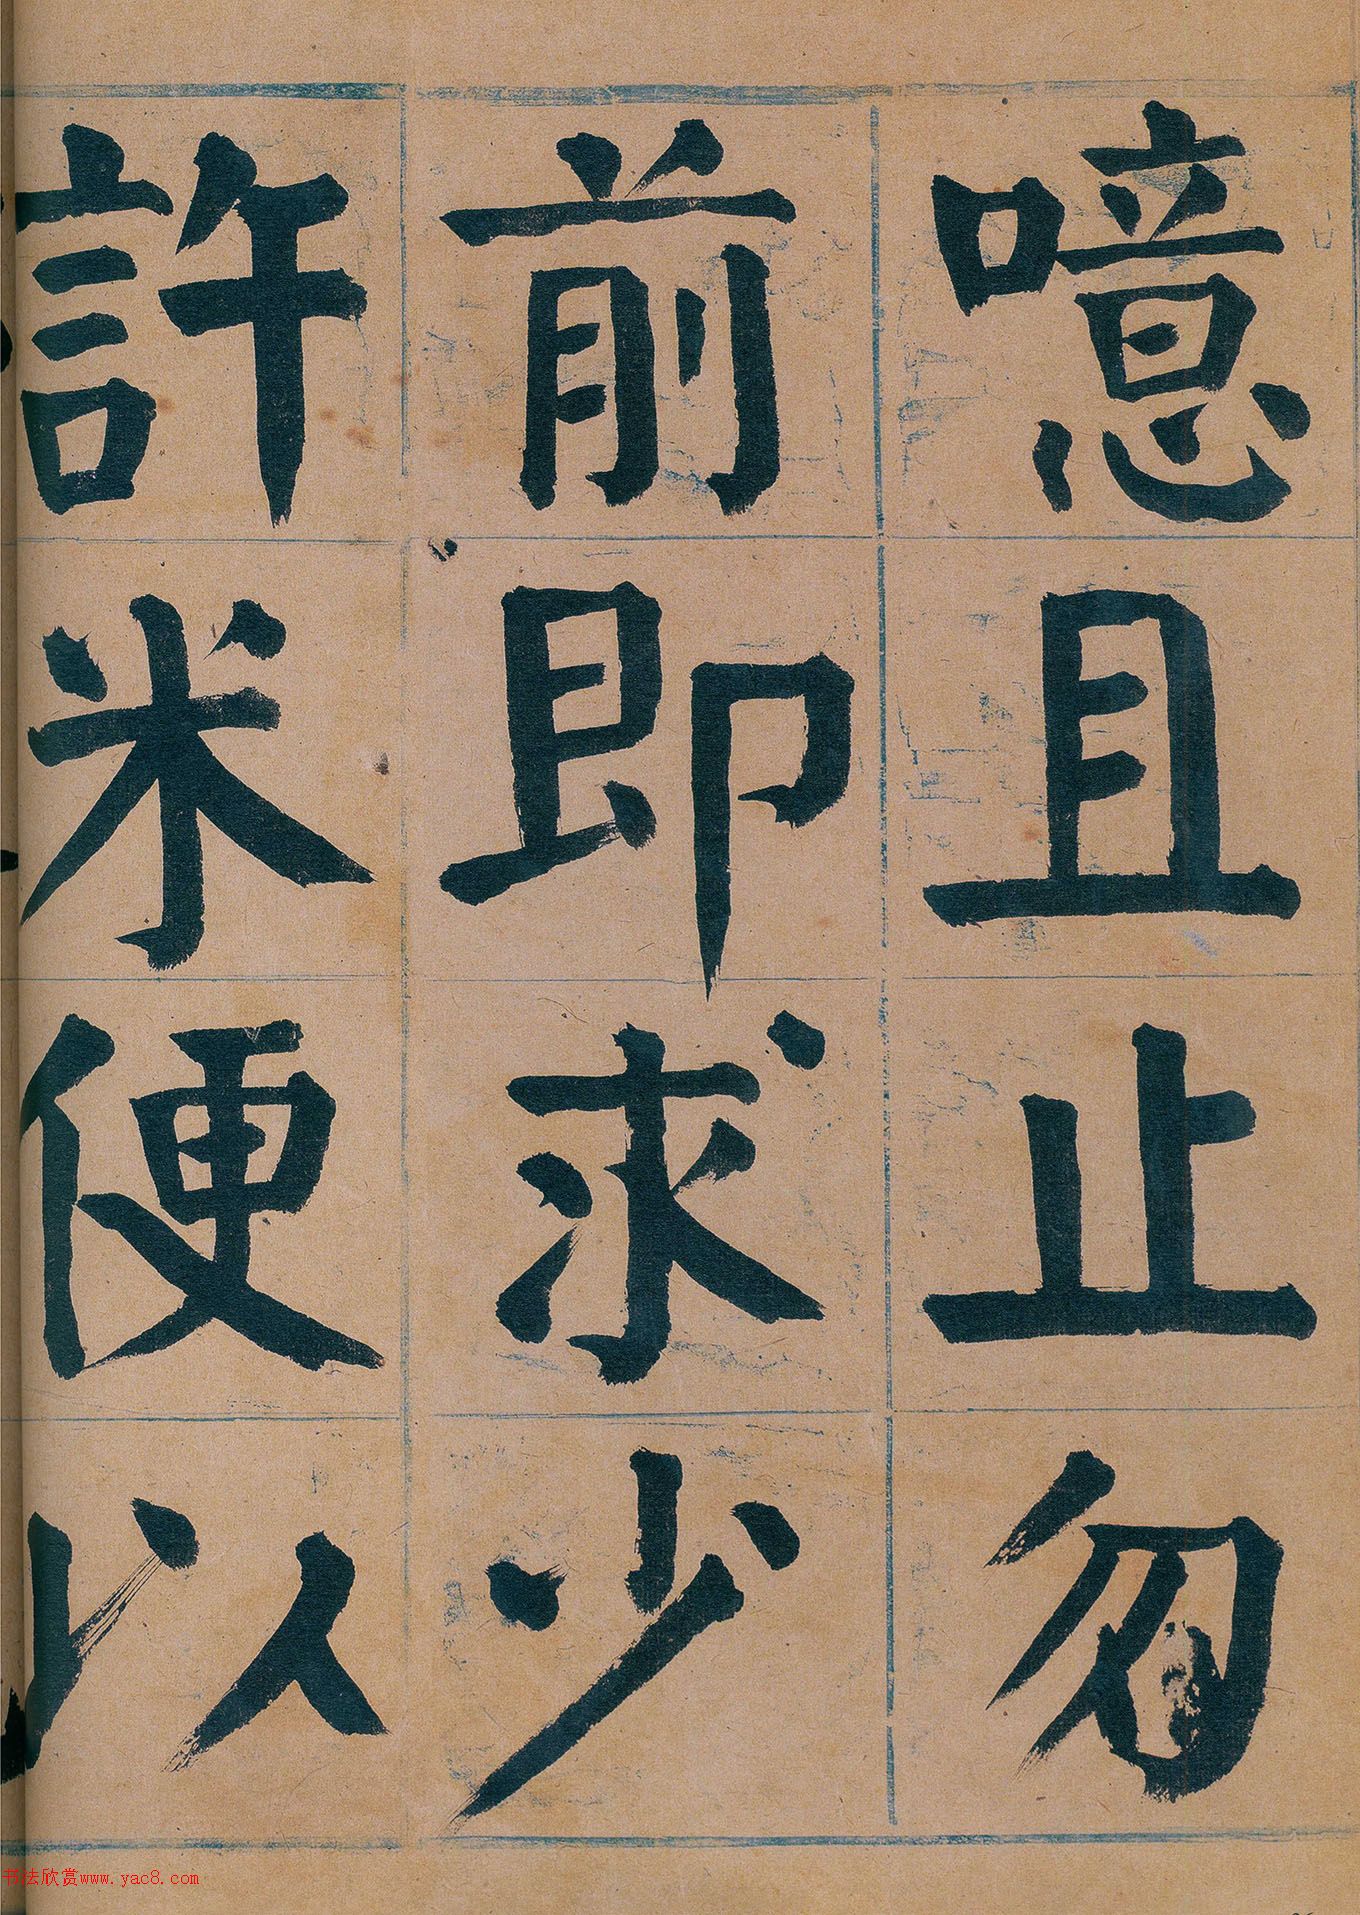 噫且止勿
前即求少
許米便以
书法欣赏www.yac8.com